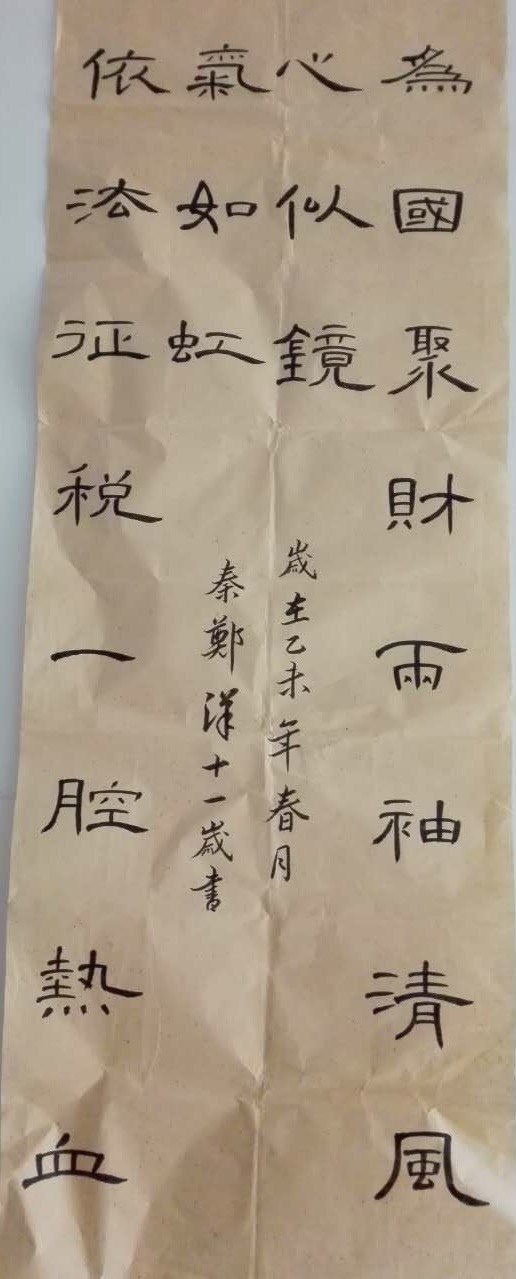 為國聚財兩袖清風
心似鏡
氣如虹
依法征税一腔熱血
歲在乙未年春月
秦鄭洋十一歲書